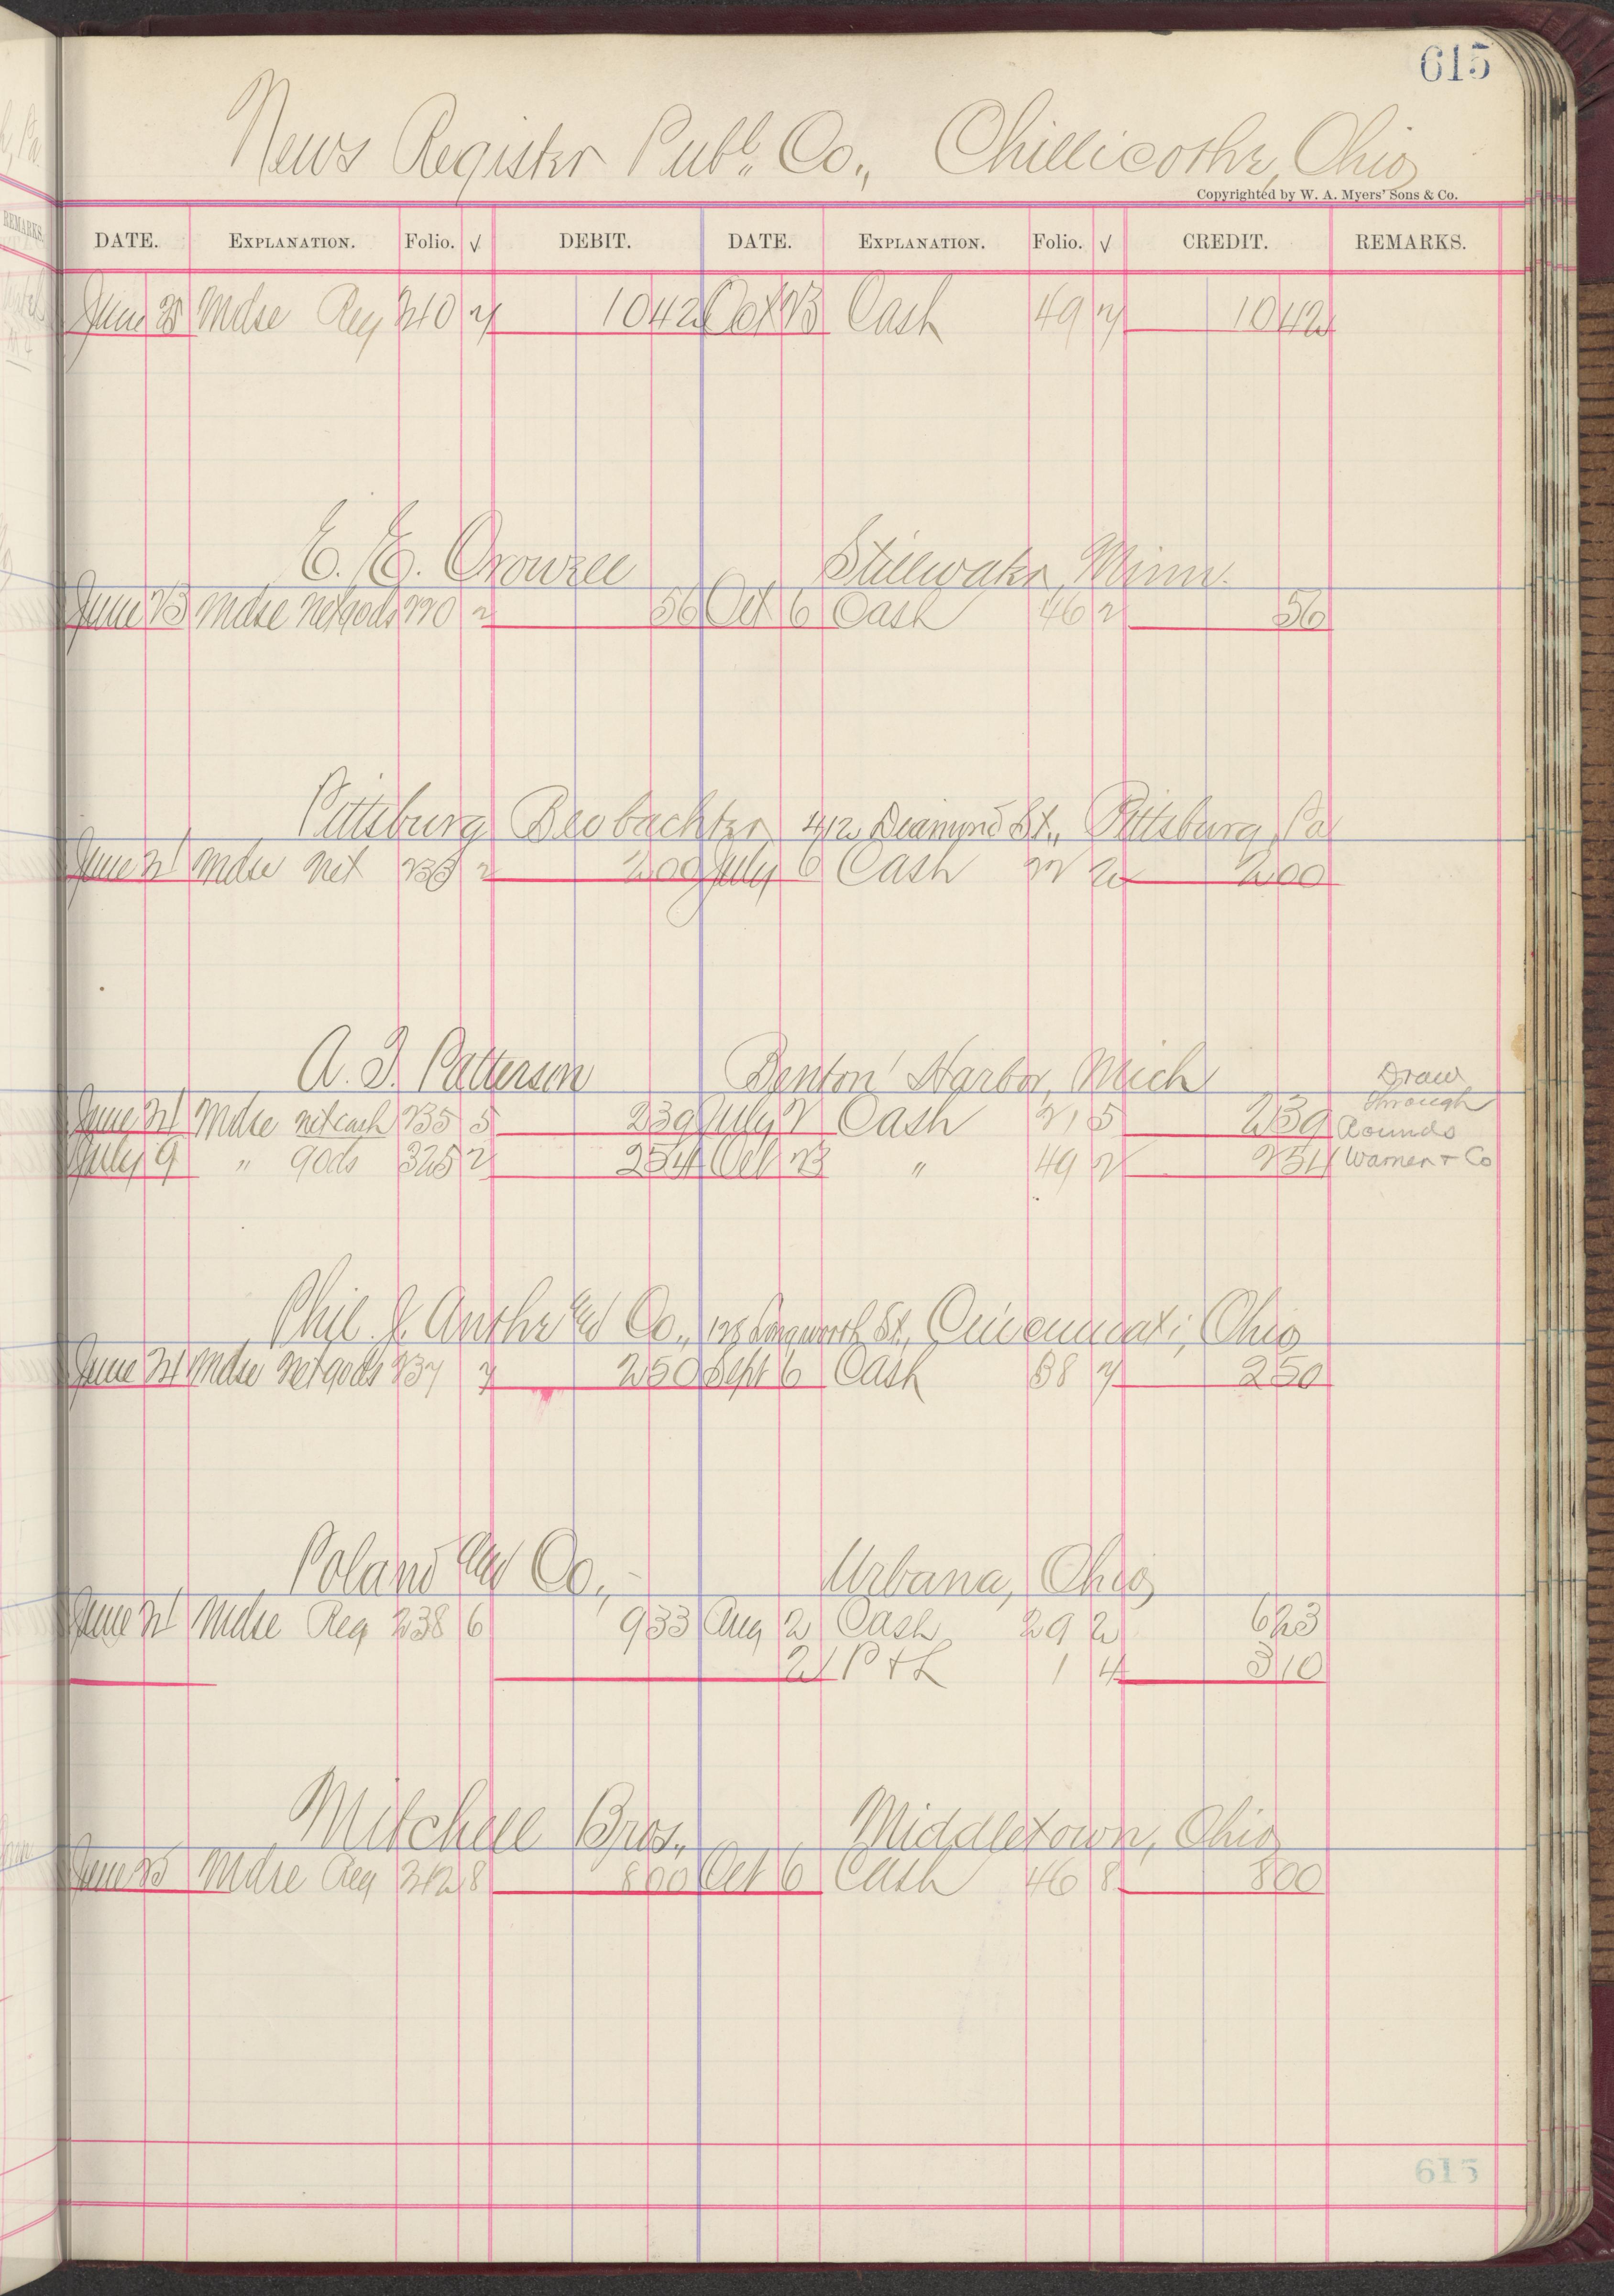 615
News Register Publ. Co., Chillicothe, Ohio
Copyrighted by W. A. Myers' Sons & Co.
DATE. EXPLANATION. Folio. √ DEBIT. DATE. EXPLANATION. Folio. √ CREDIT. REMARKS.
June 25 Mdse Reg 240 1042 Oct 13 Cash 49 1042
E. E. Stillwater, Minn.
June 23 Mdse Net 90ds 220 2 56 Oct 6 Cash 46 2 56
Pittsburg Beobachter, 412 Diamond St., Pittsburg, Pa
June 24 Mdse Net 2 200 July 6 Cash 22 2 200
A. J. Patterson Benton Harbor, Mich
Draw
through
June 24 Mdse net cash 235 5 239 July 2 Cash 21 5 239 Rounds
July 9 " 90ds 325 2 254 Oct 13 " 49 2 254 Warner & Co
Phil. J. and Co., Longworth St., Cincinnati, Ohio
June 24 Mdse Net 90ds 237 250 Sept 6 Cash 38 250
Poland and Co., Urbana, Ohio
June 24 Mdse Reg 238 6 933 Aug 2 Cash 29 2 623
2 P & L 1 4 310
Mitchell Bros., Middletown, Ohio
June 25 Mdse Reg 242 8 800 Oct 6 Cash 46 8 800
615